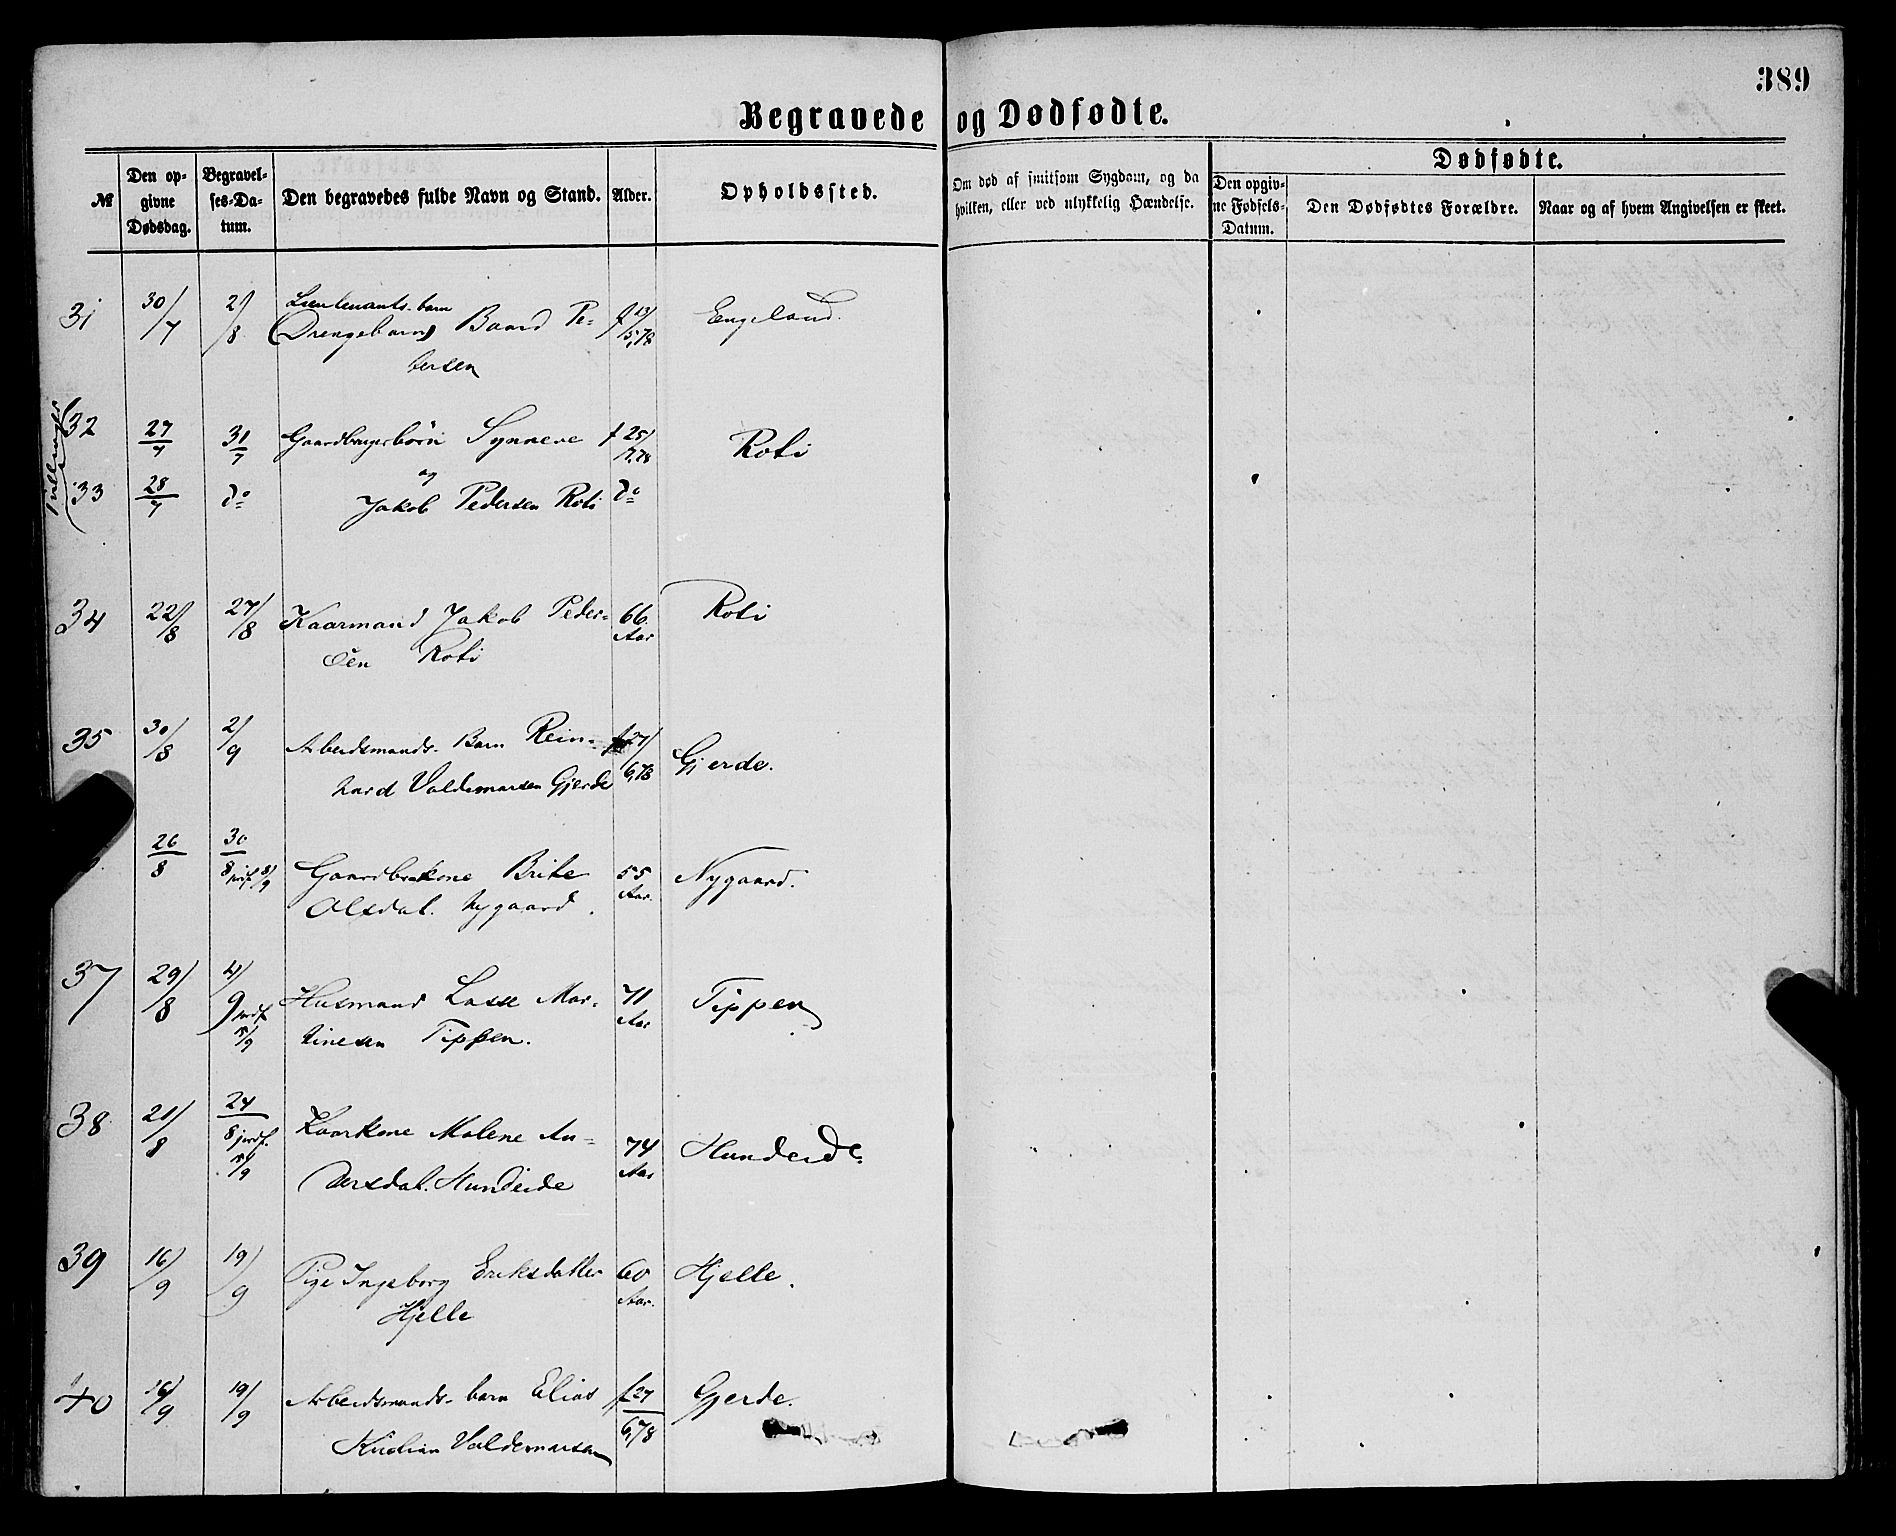 389
Begravede og Dødfødte.
Dødfødte.
№ Den op-givne Dødsdag. Begravel-ses-Da-tum. Den begravedes fulde Navn og Stand. Alder. Opholdssted. Om død af smitsom Sygdom, og da hvilken, eller ved ulykkelig Hændelse. Den opgiv-ne Fødsels-Datum. Den Dødfødtes Forældre. Naar og af hvem Angivelsen er skeet.
Lieutenants-barn
31 30/7 2/8 (Drengebarn) Baard Pe- f 13/5,78 Engeland.
tersen
Tvillinger
32 27/7 31/7 Gaardbrugerbörn Synneve f 25/7,78 Roti
og
33 28/7 do Jakob Pedersen Roti do
34 22/8 27/8 Kaarmand Jakob Peder- 66 Aar Roti
sen Roti
35 30/8 2/9 Arbeidsmands-Barn Rein- f 27/6,78 Gjerde.
hard Valdemarsen Gjerde
26/8 30/8 jordf. 8/9 Gaardbrkone Brite 55 Aar. Nygaard.
Olsdat. Nygaard.
37 29/8 4/9 jordf. 5/9 Husmand Lasse Mar- 71 Aar Tippen
tinesen Tippen.
38 21/8 24/8 jordf. 5/9 Kaarkone Malene An- 74 Aar Hundeide.
dersdat. Hundeide
39 16/9 19/9 Pige Ingeborg Eriksdatter 60 Aar. Hjelle.
Hjelle
40 16/9 19/9 Arbeidsmands-barn Elias f 27/6,78 Gjerde.
Kristian Valdemarsen